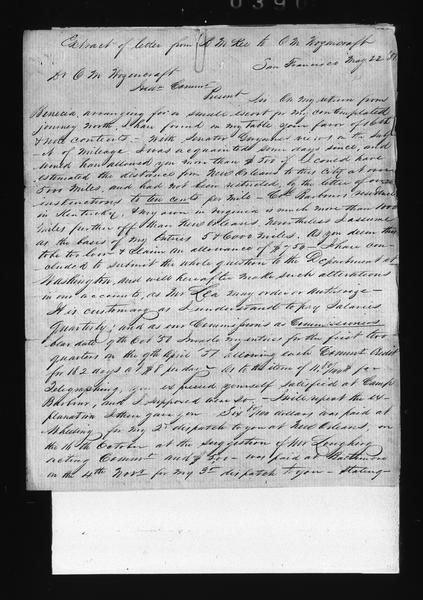 Extract of letter from R McKee to O M Wozencraft
San Francisco May 22 '51
Dr O M Wozencraft
Indn Commr
Present
Sir On my return from
Benecia, arranging for a small escort for my contemplated
journey North, I have found on my table your favor of
& note contents - With Senator views on the subj-
ect of Mileage I was acquainted some days since, and
would have allowed you more than $500 if I could have
estimated the distance from New Orleans to this City at over
5000 miles, and had not been restricted, by the letter of our
instructions to ten cents per mile - Col Barbours residence
in Kentucky, & my own in Virginia is much more than 1000
miles further off than New Orleans, nevertheless I assumed
as the basis of my Entries 5 & 6000 miles. As you deem this
to be too low & claim an allowance of $750 - I have con-
cluded to submit the whole question to the Department at
Washington, and will hereafter make such alterations
in our accounts, as Mr Lea may order or authorize -
It is customary as I understand to pay Salaries
Quarterly, and as our Commissions as Commissioners
bear date 9th Oct 50 I made my entries for the first two
quarters on the 9th April '51 allowing each Commr Credit
for 182 days at $8 per day - As to the item of for
Telegraphing, you expressed yourself satisfied at Camp
Barbour, and I supposed were so, - I will repeat the ex-
planation I then gave you - Six dollars was paid at
Wheeling for my dispatch to you at New Orleans, on
the 16th October at the suggestion of Mr Loughery
acting Commr and was paid at Baltimore
on the 4th Novr for my 2d dispatch to you - stating